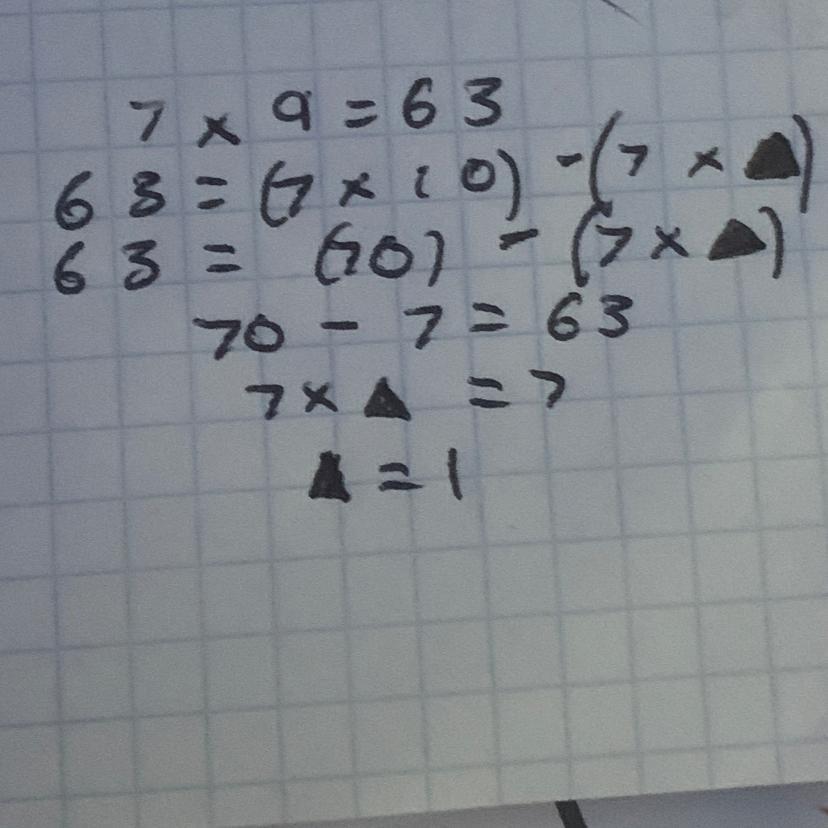 7 × 9 = 63
63 = (7 × 10) - (7 × ▲)
63 = (70) - (7 × ▲)
70 - 7 = 63
7 × ▲ = 7
▲ = 1